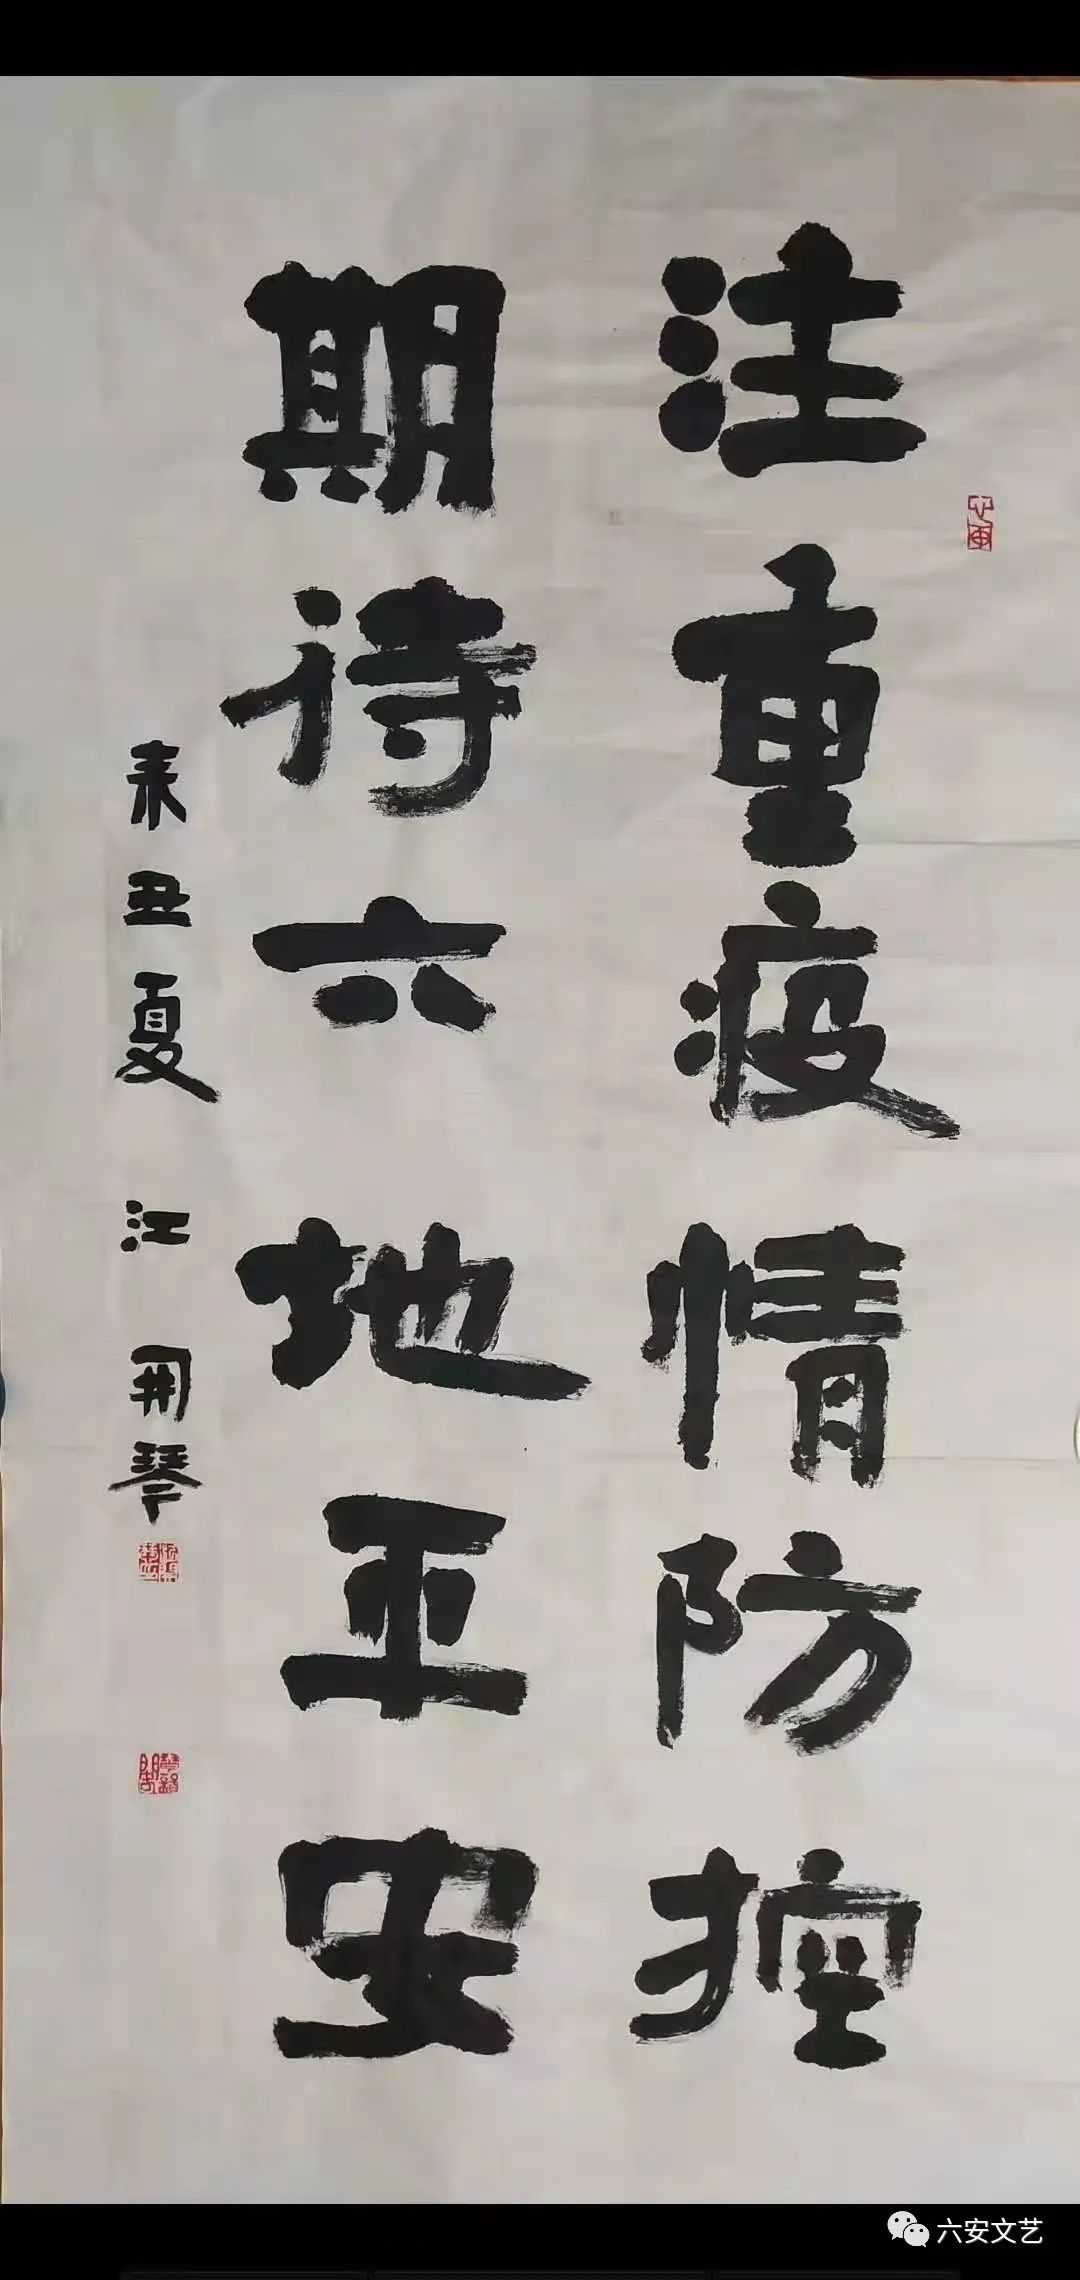 注重疫情防控
期待六地平安
辛丑夏 江開琴
六安文艺